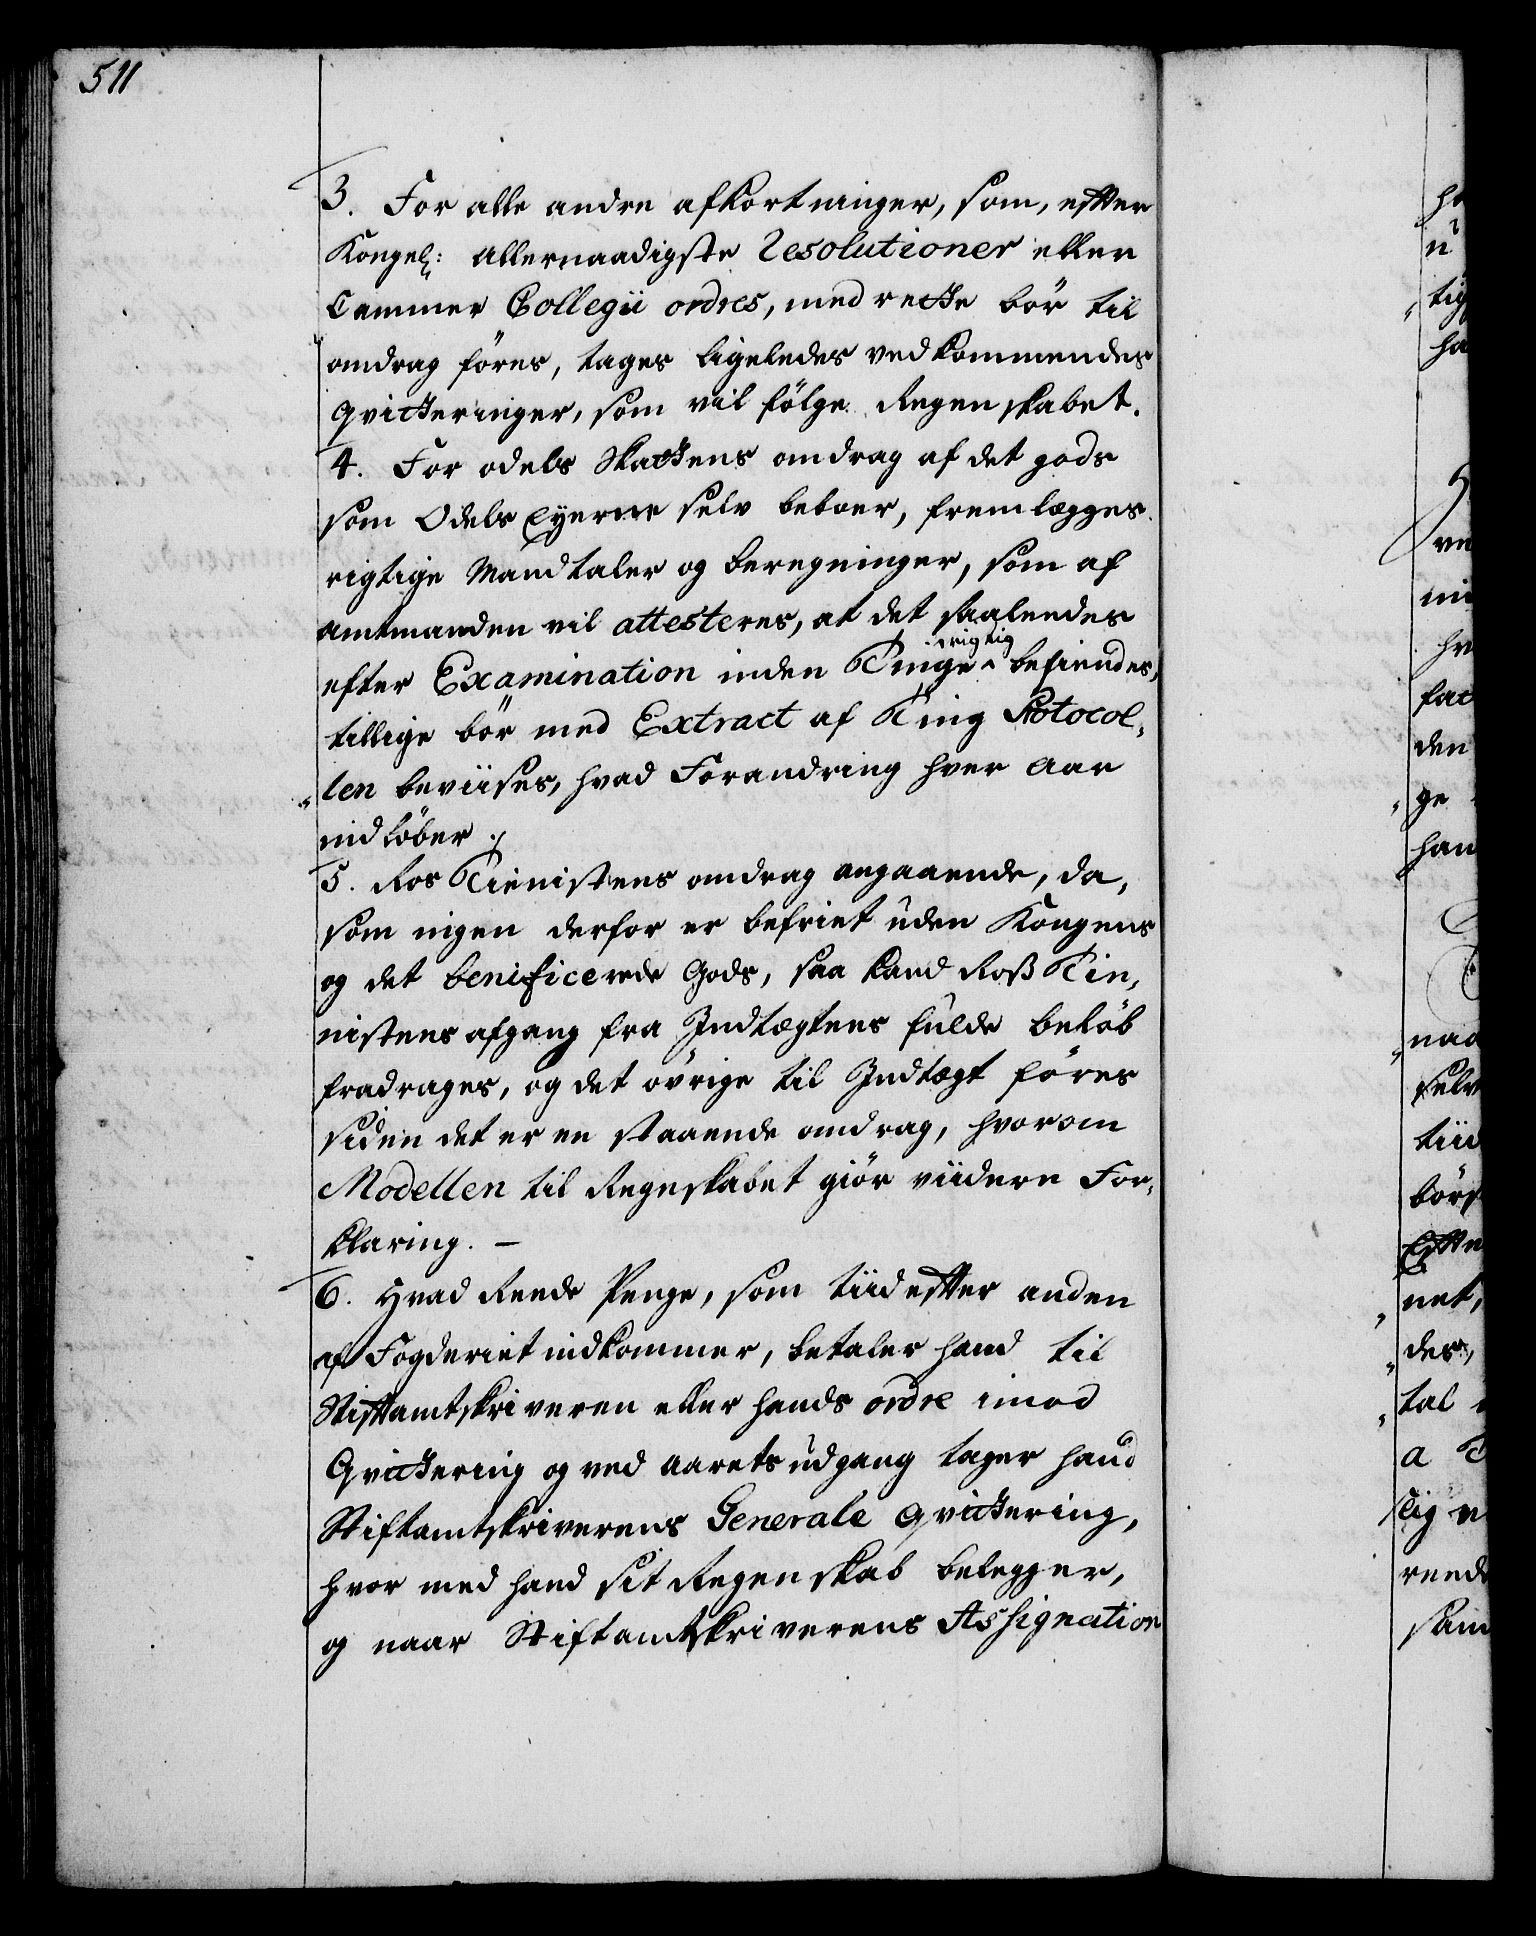 511
3. For alle andre afkortninger, som, efter
Kongel: allernaadigste Resolutioner eller
Cammer Collegii ordres, med rette bör til
omdrag föres, tages ligeledes vedkommendes
qvitteringer, som vil fölge Regenskabet.
4. For odels Skattens omdrag af det gods
som Odels Eyerne selv beboer, fremlægges
rigtige Mandtaler og beregninger, som af
amtmanden vil attesteres, at det saaleedes
rigtig
efter Examination inden Tinge befindes,
tillige bör med Extract af Ting Protocol-
len beviises, hvad Forandring hver Aar
indlöber.
5. Ros Tienistens omdrag angaaende, da,
som ingen derfor er befriet uden Kongens
og det beneficerede Gods, saa kand Roß Tie-
nistens afgang fra Indtægtens fulde belöb
fradrages, og det övrige til Indtægt föres
siden det er en staaende omdrag, hvorom
Modellen til Regnskabet giör viidere For-
klaring. -
6. Hvad Reede Penge, som tiid efter anden
af Fogderiet indkommer, betaler hand til
Stiftamtskriveren eller hands ordre imod
Qvittering og ved aarets udgang tager hand
Stiftamtskriverens Generale qvittering,
hvor med hand sit Regenskab belegger,
og naar Stiftamtskriverens Assignation